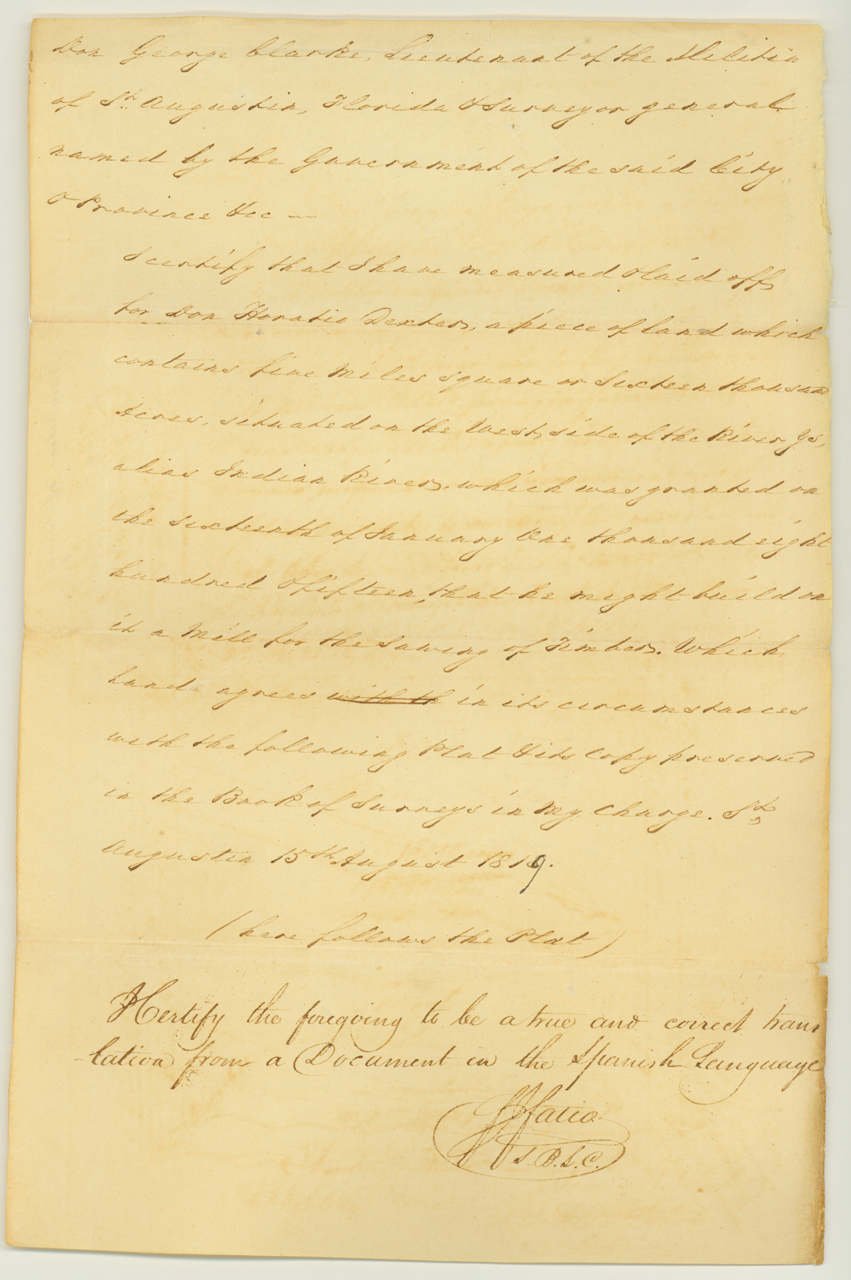 Don George Clarke, Lieutenant of the Militia
of St. Augustin, Florida & Surveyor general
named by the Government of the said City
& Province &ec —
I certify that I have measured & laid off,
for Don Horatio Dexter, a piece of land which
contains five Miles square or Sixteen thousand
Acres, situated on the West, side of the River Ys,
alias Indian River, which was granted on
the sixteenth of January One thousand eight
hundred & fifteen, that he might build on
it a Mill for the Sawing of Timber. Which
land agrees with th in its circumstances
with the following Plat & its Copy preserved
in the Book of Surveys in my Charge. St,
Augustin 15th August 1819.
(here follows the Plat)
I Certify the foregoing to be a true and correct trans
-lation from a Document in the Spanish Language
FJFatio
S.B.L.C.